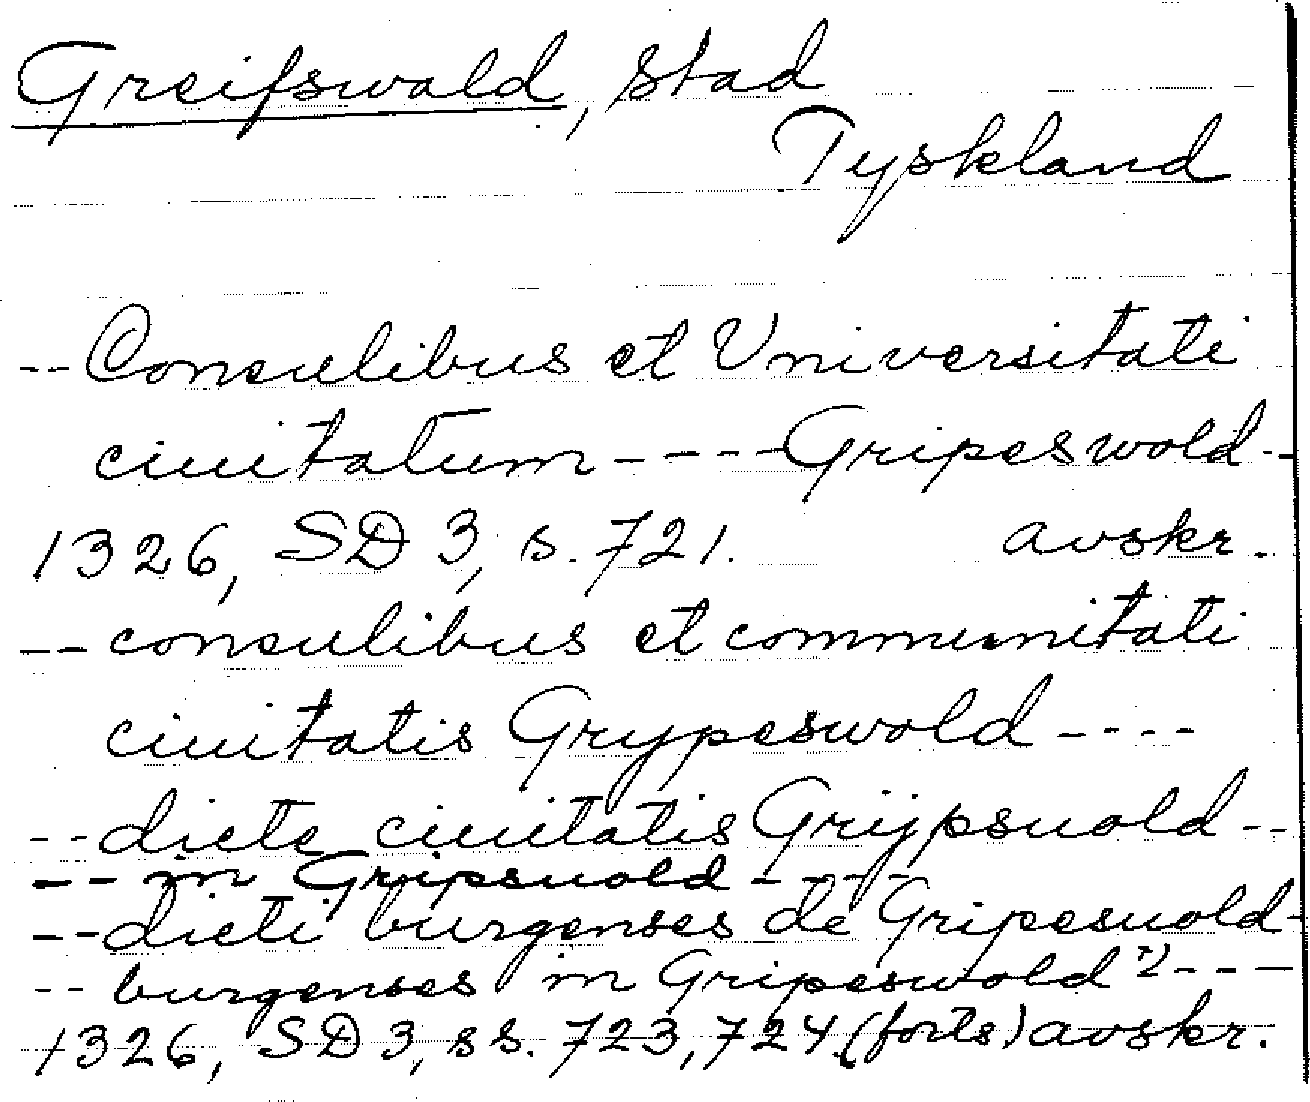 Greifswald, stad
Tyskland
-- Consulibus et Vniversitati
ciuitatum ---- Gripeswold --
1326, SD 3, s. 721. avskr.
-- consulibus et communitati
ciuitatis Grypeswold ----
-- dicte ciuitatis Grijpsuold --
-- in Gripsuold ----
-- dicti burgenses de Gripesuold -
-- burgenses in Gripeswold 2) ---
1326, SD 3, ss. 723, 724. (forts) avskr.